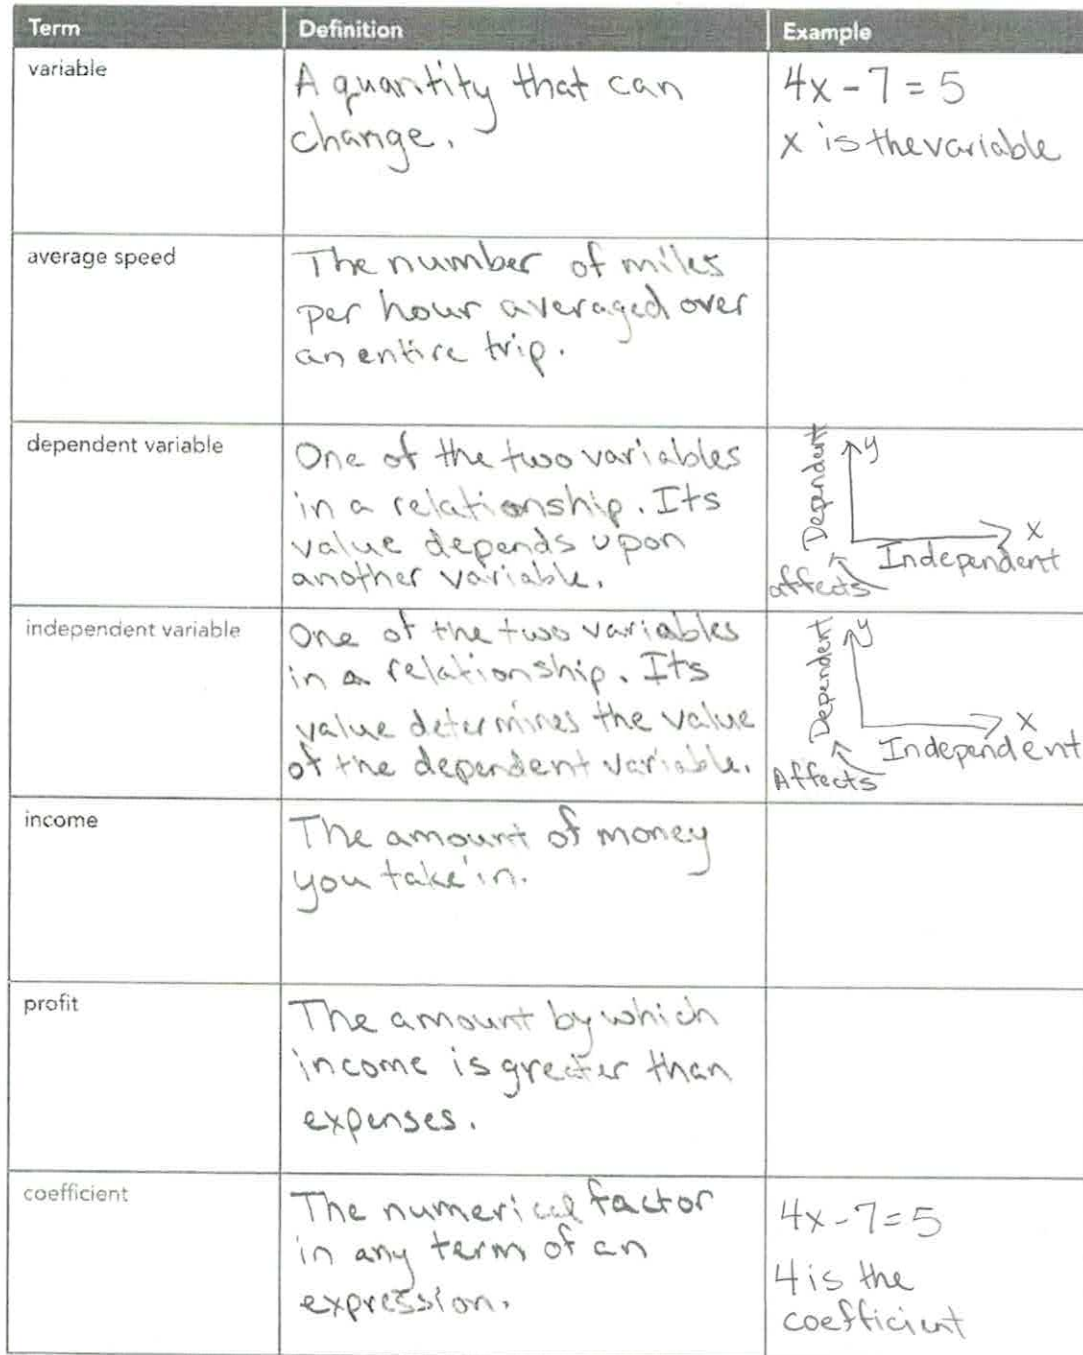 Term Definition Example
variable
A quantity that can
change.
4x - 7 = 5
x is the variable
average speed
The number of miles
per hour averaged over
an entire trip.
dependent variable
One of the two variables
in a relationship. Its
value depends upon
another variable.
Dependent
y
x
Independent
affects
independent variable
One of the two variables
in a relationship. Its
value determines the value
of the dependent variable.
Dependent
y
x
Independent
Affects
income
The amount of money
you take in.
profit
The amount by which
income is greater than
expenses.
coefficient
The numerical factor
in any term of an
expression.
4x - 7 = 5
4 is the
coefficient